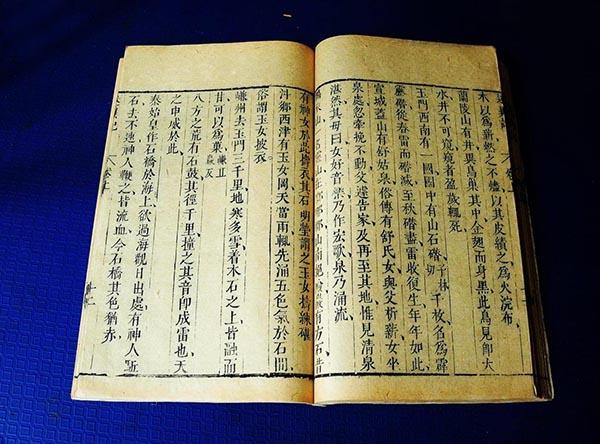 木以為薪燃之不燼以其皮績之為火浣布
蘭陵山有井異鳥巢其中金翅而身黑此鳥見即大
水井不可窺窺者盈歲輒死
玉門西南有一國國中有山石磥千枚名為霹
靂磥從春雷而磥減至秋磥盡雷收復生年年如此
宣城蓋山有舒姑泉俗傳有舒氏女與父析薪女坐
泉處忽牽挽不動父遽告家及再至其地惟見清泉
湛然其母曰女好音樂乃作歌泉乃涌流
有方石昔
有神女於此擣衣其石明瑩謂之玉女擣練碪
斗鄉西津有玉女岡天當雨輒先涌五色氣於石間
俗謂玉女披衣
嵰州去玉門三千里地寒多雪着木石之上皆融而
甘可以為菓
八方之荒有石鼓其徑千里撞之其音即成雷也天
之申威於此
秦始皇作石橋於海上欲過海觀日出處有神人驅
石去不速神人鞭之皆流血今石橋其色猶赤